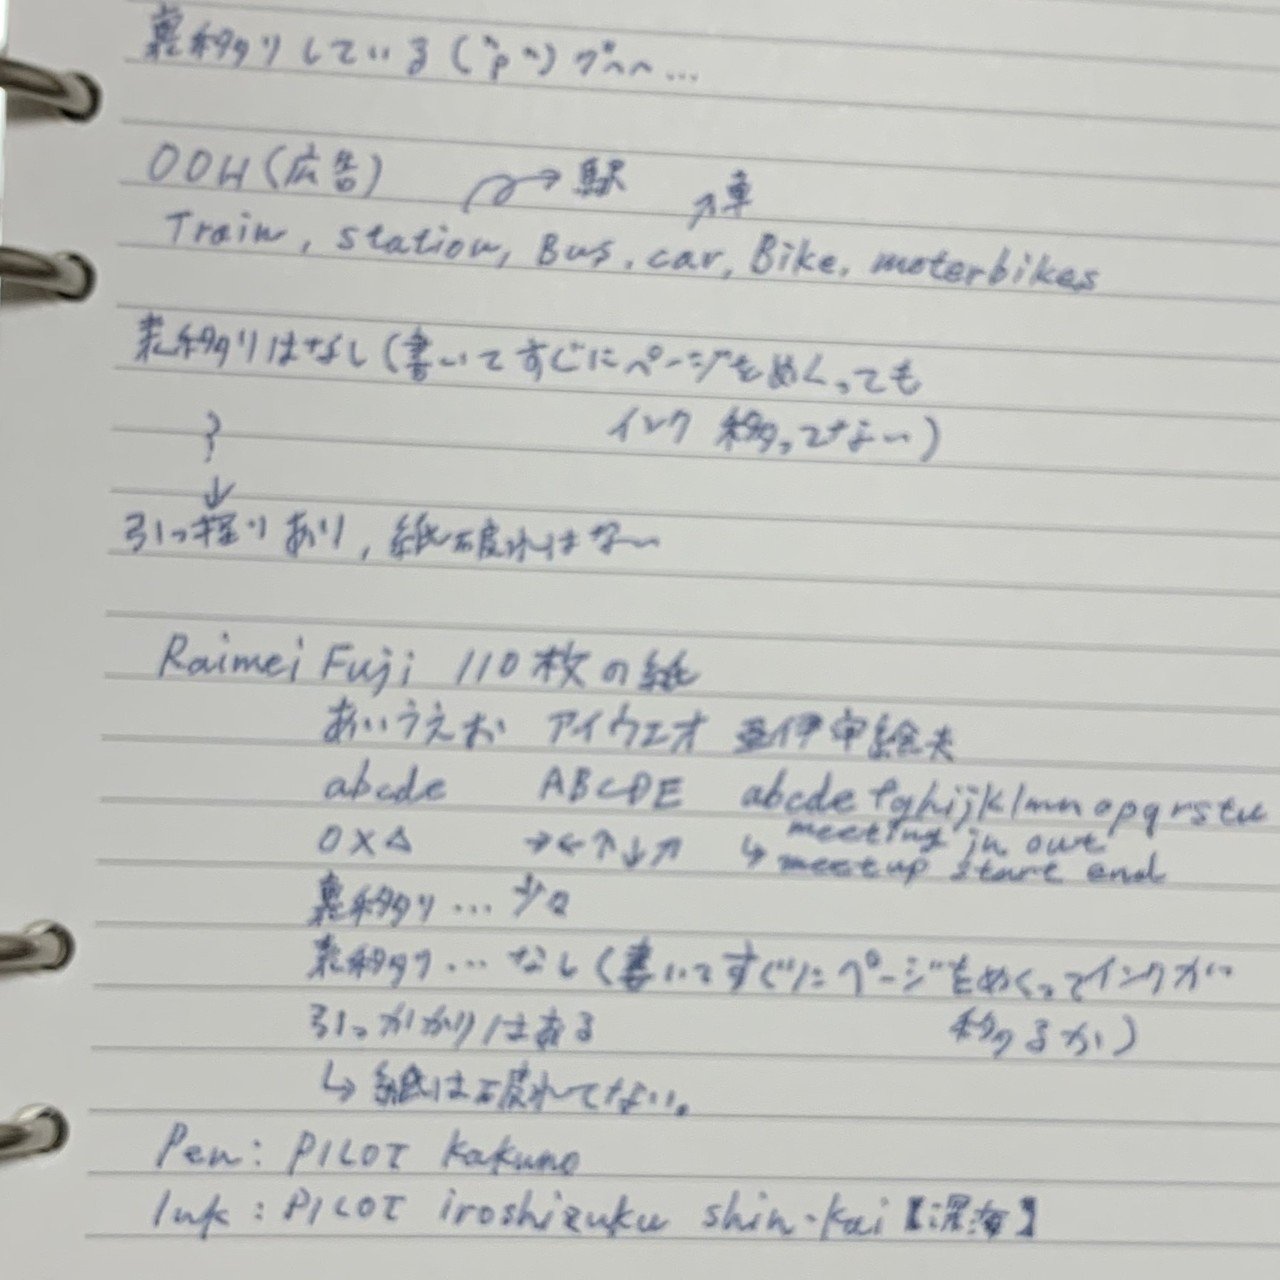 裏移りしている (^p^) グヘヘ…
OOH(広告)
駅
車
Train, station, Bus, car, Bike, moterbikes
表移りはなし(書いてすぐにページをめくっても
インク移ってない)
?
↓
引っ掛り あり, 紙破れはない
Raimei Fuji 110枚の紙
あいうえお アイウエオ 亜伊宇絵夫
abcde ABCDE abcdefghijklmnopqrstu
○×△ →←↑↓↗ ↳ meeting in out
meetup start end
裏移り … 少々
表移り … なし(書いてすぐにページをめくってインクが
移るか)
引っかかりはある
↳ 紙は破れてない。
Pen: PILOT kakuno
Ink: PILOT iroshizuku shin-kai【深海】